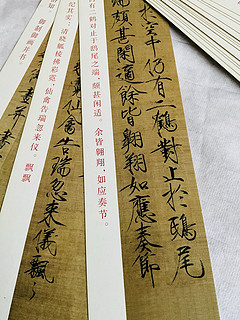 於空中仍有二鶴對止於鴟尾
端頗甚閑適餘皆翺翔如應奏節
有二鹤对止于鸱尾之端,颇甚闲适。余皆翱翔,如应奏节。
仙禽告瑞忽来儀飄々
纪其实:清晓觚棱拂彩霓,仙禽告瑞忽来仪。飘飘
御制御画并书。